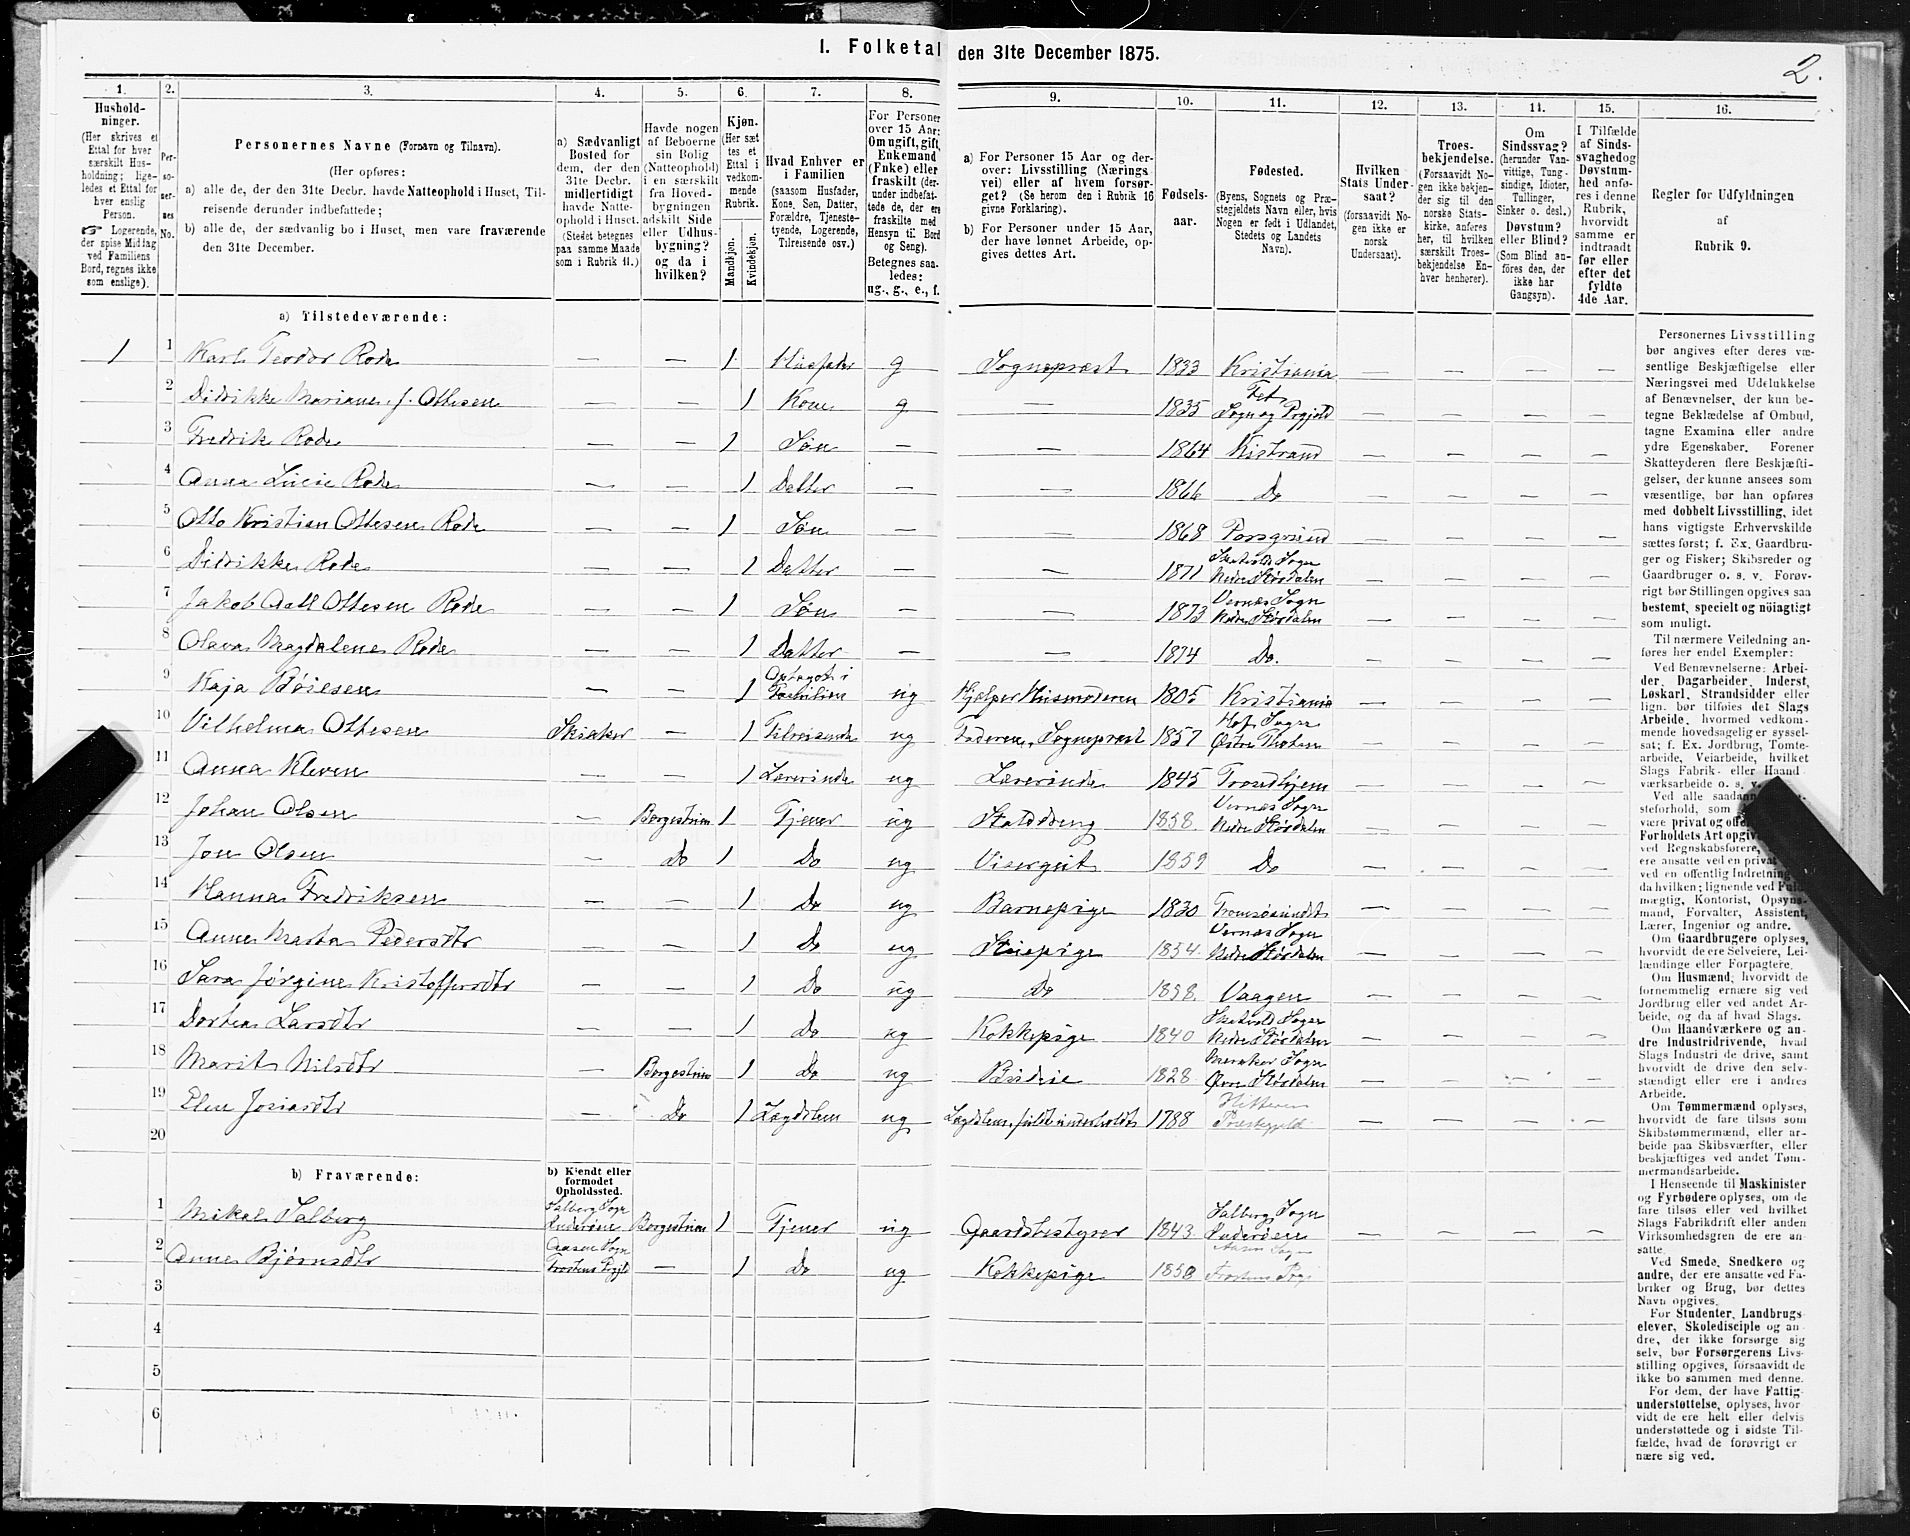 2.
I. Folketal den 31te December 1875.
1. 2. 3. 4. 5. 6. 7. 8. 9. 10. 11. 12. 13. 14. 15. 16.
Hushold-
ninger.
(Her skrives et
Ettal for hver
særskilt Hus-
holdning; lige-
ledes et Ettal for
hver enslig
Person.
Logerende,
der spise Middag
ved Familiens
Bord, regnes ikke
som enslige).
Per-
so-
ner-
nes
No.
Personernes Navne (Fornavn og Tilnavn).
(Her opføres:
a) alle de, der den 31te Decbr. havde Natteophold i Huset, Til-
reisende derunder indbefattede;
b) alle de, der sædvanlig bo i Huset, men vare fraværende
den 31te December.
a) Sædvanligt
Bosted for
dem, der den
31te Decbr.
midlertidigt
havde Natte-
ophold i Huset.
(Stedet betegnes
paa samme Maade
som i Rubrik 11.)
Havde nogen
af Beboerne
sin Bolig
(Natteophold)
i en særskilt
fra Hoved-
bygningen
adskilt Side
eller Udhus-
bygning?
og da i
hvilken?
Kjøn.
(Her sæt-
tes et
Ettal i
vedkom-
mende
Rubrik.
Mandkjøn.
Kvindekjøn.
Hvad Enhver er
i Familien
(saasom Husfader,
Kone, Søn, Datter,
Forældre, Tjeneste-
tyende, Logerende,
Tilreisende osv.)
For Personer
over 15 Aar:
Om ugift, gift,
Enkemand
(Enke) eller
fraskilt (der-
under indbefat-
tede de, der ere
fraskilte med
Hensyn til Bord
og Seng).
Betegnes saa-
ledes:
ug., g., e., f.
a) For Personer 15 Aar og der-
over: Livsstilling (Nærings
vei) eller af hvem forsør-
get? (Se herom den i Rubrik 16
givne Forklaring).
b) For Personer under 15 Aar,
der have lønnet Arbeide, op-
gives dettes Art.
Fødsels-
aar.
Fødested.
(Byens, Sognets og Præ-
stegjeldets Navn eller, hvis
Nogen er født i Udlandet,
Stedets og Landets
Navn).
Hvilken
Stats Under-
saat?
(forsaavidt No-
gen ikke er
norsk
Undersaat).
Troes-
bekjendelse.
(Forsaavidt No-
gen ikke bekjen-
der sig til den
norske Stats-
kirke, anføres
her, til hvilken
særskilt Troes-
bekjendelse En-
hver henhører).
Om
Sindssvag?
(herunder Van-
vittige, Tung-
sindige, Idioter,
Tullinger,
Sinker o. desl.)
Døvstum?
eller Blind?
(Som Blind an-
føres den, der
ikke har
Gangsyn).
I Tilfælde
af Sinds-
svaghed og
Døvstum-
hed anfø-
res i denne
Rubrik,
hvorvidt
samme er
indtraadt
før eller
efter det
fyldte
4de Aar.
Regler for Udfyldningen
af
Rubrik 9.
a) Tilstedeværende:
1 1 Karl Teodor Rode — — 1 Husfader g Sognepræst 1833 Kristiania — — — —
2 Didrikke Mariane f. Ottesen — — 1 Kone g — 1835 Fet Sogn og Prgjeld — — — —
3 Fredrik Rode — — 1 Søn — — 1864 Kistrand — — — —
4 Anna Lucie Rode — — 1 Datter — — 1866 Do — — — —
5 Otto Kristian Ottesen Rode — — 1 Søn — — 1868 Porsgrund — — — —
6 Didrikke Rode — — 1 Datter — — 1871 Skatvold Sogn Nedre Størdalen — — — —
7 Jakob Aall Ottesen Rode — — 1 Søn — — 1873 Vernæs Sogn Nedre Størdalen — — — —
8 Olava Magdalene Rode — — 1 Datter — — 1874 Do. — — — —
9 Kaja Boiesen — — 1 Optaget i Familien ug Hjælper Husmoderen 1805 Kristiania — — — —
10 Vilhelma Ottesen Skiaker — 1 Tilreisende ug Faderen, Sognepræst 1857 Hof Sogn Østre Thoten — — — —
11 Anna Kleven — — 1 Lærerinde ug Lærerinde 1845 Trondhjem — — — —
12 Johan Olsen — Borgestuen 1 Tjener ug Stalddreng 1858. Vernæs Sogn Nedre Størdalen — — — —
13 Jon Olsen — Do 1 Do ug Visergut 1859 Do — — — —
14 Hanna Fredriksen — — 1 Do ug Barnepige 1830 Tromsøsundet — — — —
15 Anne Marta Pedersdtr — — 1 Do ug Stuepige 1854. Vernæs Sogn Nedre Størdalen — — — —
16 Sara Jørgine Kristoffersdtr — — 1 Do ug Do 1858. Vaagen — — — —
17 Dortea Larsdtr — — 1 Do ug Kokkepige 1840 Skatvold Sogn Nedre Størdalen — — — —
18 Marit Nilsdtr — Borgestuen 1 Do ug Budeie 1828 Meraker Sogn Øvre Størdalen — — — —
19 Elen Josiasdtr — Do 1 Lægdslem ug Lægdslem, fuldt underholdt 1788 Hitteren Præstegjeld — — — —
20
b) Fraværende:
b) Kjendt eller
formodet
Opholdssted.
1 Mikal Salberg Salberg Sogn Inderøen Borgestuen 1 Tjener ug Gaardsbestyrer 1843. Salberg Sogn Inderøen — — — —
2 Anne Bjørnsdtr Aasen Sogn Frostens Prgjld — 1 Do ug Kokkepige 1858 Aasen Sogn Frostens Prgj — — — —
3
4
5
6
Personernes Livsstilling
bør angives efter deres væ-
sentlige Beskjæftigelse eller
Næringsvei med Udelukkelse
af Benævnelser, der kun be-
tegne Beklædelse af Ombud,
tagne Examina eller andre
ydre Egenskaber. Forener
Skatteyderen flere Beskjæfti-
gelser, der kunne ansees som
væsentlige, bør han opføres
med dobbelt Livsstilling, idet
hans vigtigste Erhvervskilde
sættes først; f. Ex. Gaardbru-
ger og Fisker; Skibsreder og
Gaardbruger o. s. v. Forøv-
rigt bør Stillingen opgives saa
bestemt, specielt og nøiagtigt
som muligt.
Til nærmere Veiledning an-
føres her endel Exempler:
Ved Benævnelserne: Arbei-
der, Dagarbeider, Inderst,
Løskarl, Strandsidder eller
lign. bør tilføies det Slags
Arbeide, hvormed vedkom-
mende hovedsagelig er syssel-
sat; f. Ex. Jordbrug, Tomte-
arbeide, Veiarbeide, hvilket
Slags Fabrik- eller Haand-
værksarbeide o. s. v.
Ved alle saadanne
steforhold, som
være privat og
Forholdets Art opgives
ved Regnskabsførere,
ere ansatte ved en privat
ved en offentlig Indretning
da hvilken; lignende ved Fuld-
mægtig, Kontorist, Opsyns-
mand, Forvalter, Assistent,
Lærer, Ingeniør og andre.
Om Gaardbrugere oplyses,
hvorvidt de ere Selveiere, Lei-
lændinge eller Forpagtere.
Om Husmænd, hvorvidt de
fornemmelig ernære sig ved
Jordbrug eller ved andet Ar-
beide, og da af hvad Slags.
Om Haandværkere og an-
dre Industridrivende, hvad
Slags Industri de drive, samt
hvorvidt de drive den selv-
stændigt eller ere i andres
Arbeide.
Om Tømmermænd oplyses,
hvorvidt de fare tilsøs som
Skibstømmermænd, eller ar-
beide paa Skibsværfter, eller
beskjæftiges ved andet Tøm-
mermandsarbeide.
I Henseende til Maskinister
og Fyrbødere oplyses, om de
fare tilsøs eller ved hvilket
Slags Fabrikdrift eller anden
Virksomhedsgren de ere an-
satte.
Ved Smede, Snedkere og
andre, der ere ansatte ved Fa-
briker og Brug, bør dettes
Navn opgives.
For Studenter, Landbrugs-
elever, Skoledisciple og an-
dre, der ikke forsørge sig
selv, bør Forsørgerens Livs-
stilling opgives, forsaavidt de
ikke bo sammen med denne.
For dem, der have Fattig-
understøttelse, oplyses, hvor-
vidt de ere helt eller delvis
understøttede og i sidste Til-
fælde, hvad de forøvrigt er-
nære sig ved.